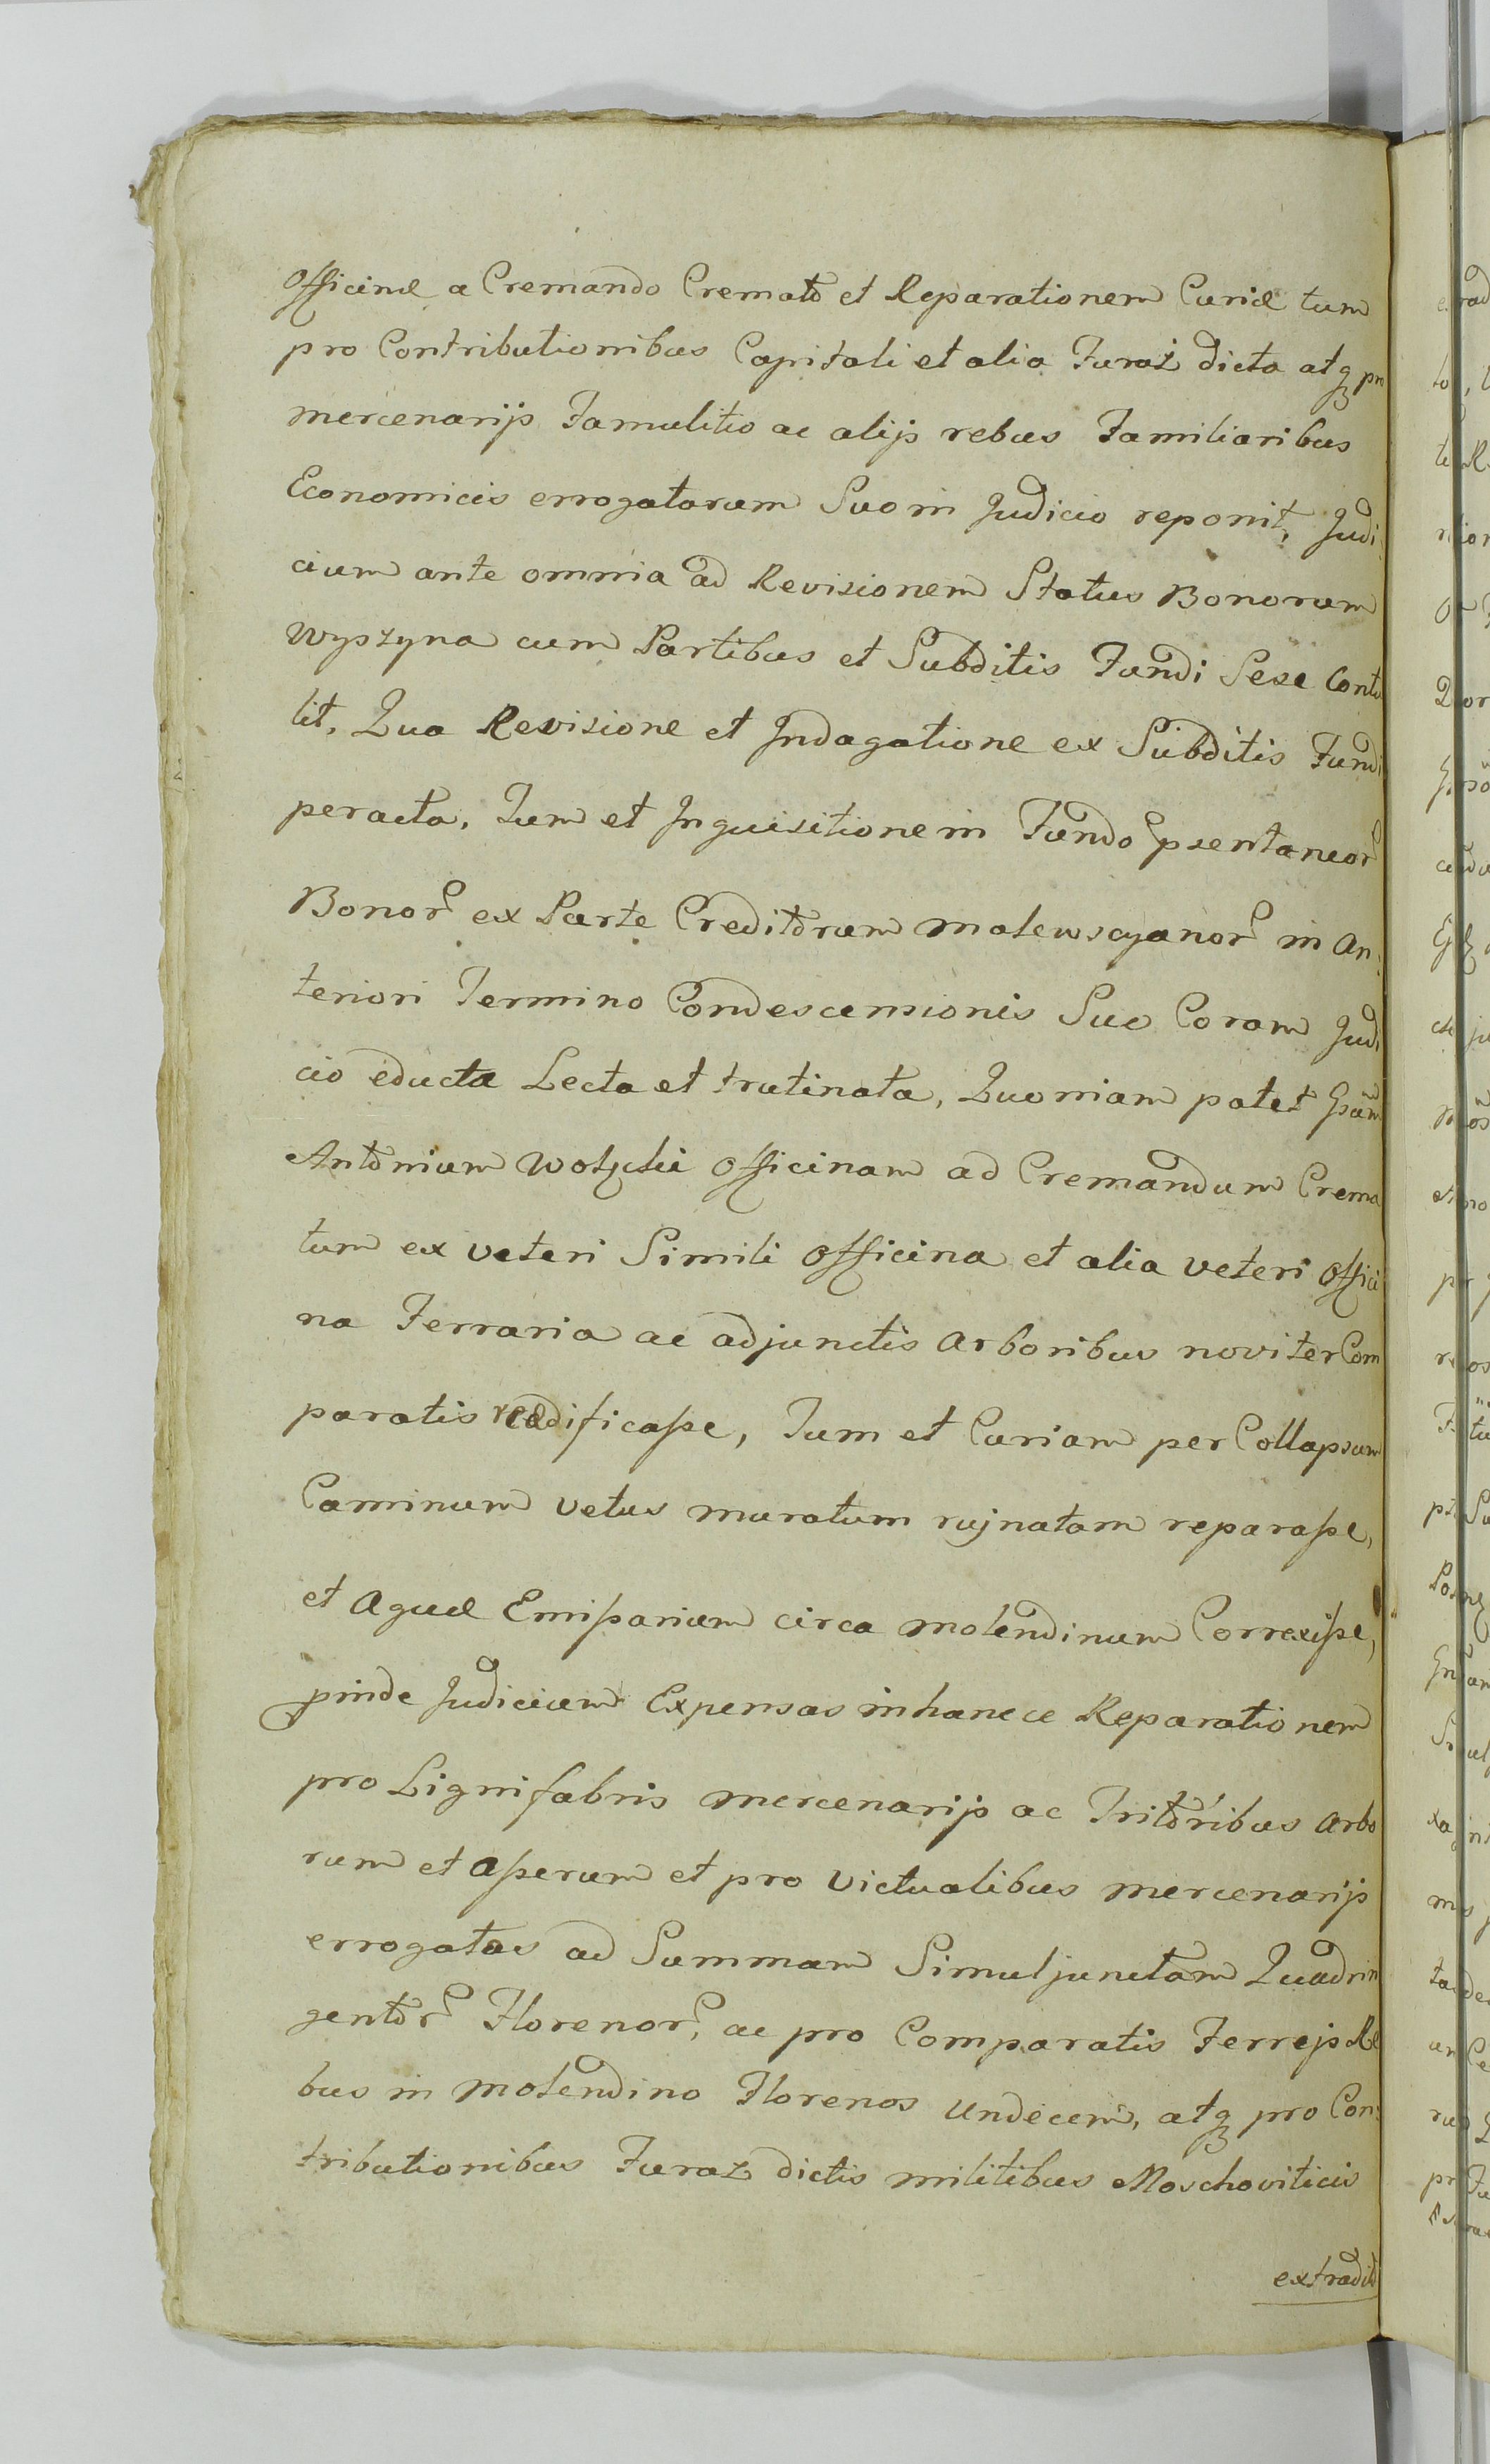 Officinæ a Cremando Cremato et Reparationem Curiæ tum
pro Contributionibus Capitali et alia Furaż dicta atq₃ pro
mercenarijs Famulitio ac alijs rebus Familiaribus
Economicis errogatorum Suo in Judicio reponit, Judi
cium ante omnia ad Revisionem Status Bonorum
Wyszyna cum Partibus et Subditis Fundi Sese Contu
lit, Qua Revisione et Indagatione ex Subditis Fundi
peracta, Tum et Inquisitione in Fundo psentaneor
Bonor ex Parte Creditorum Malewscyanor in An
teriori Termino Condescensionis Suo Coram Judi
cio educta Lecta et trutinata, Quoniam patet Gsum
Antonium Wolycki Officinam ad Cremandum Crema
tum ex veteri Simili Officina et alia veteri Offici
na Ferraria ac adjunctis Arboribus noviter Com
paratis reædificasse, Tum et Curiam per Collapsum
Caminum vetus muratum rujnatam reparasse,
et Aquæ Emissarium circa molendinum Correxisse,
pinde Judicium Expensas in hancce Reparationem
pro Lignifabris mercenarijs ac Tritoribus Arbo
rum et Asserum et pro victualibus mercenarijs
errogatas ad Summam Simul junctam Quadrin
gentor Florenor, ac pro Comparatis Ferrejs Re
bus in molendino Florenos Undecem, atq₃ pro Con:
tributionibus Furaż dictis militibus Moschoviticis
extradito